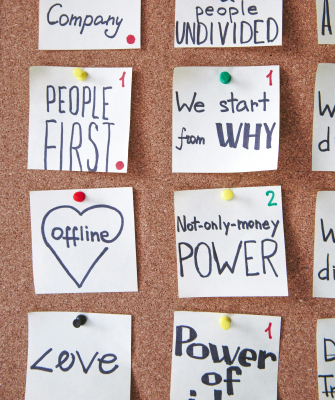 Company
people
UNDIVIDED
1
PEOPLE
FIRST
1
We start
from WHY
offline
2
Not-only-money
POWER
Love
1
Power
of